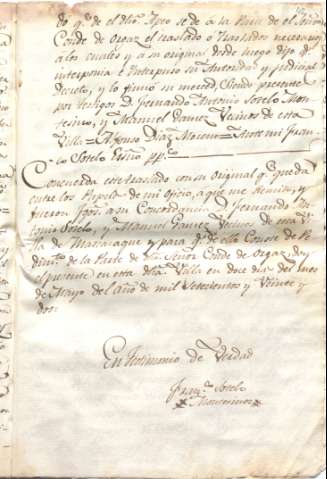 do q.e de el dho. Apeo se de a la Parte de el Señor
Conde de Orgaz el traslado o traslados necesarios
a los cuales y a su original desde luego dijo q.e
interponía e Interpuso su Autoridad y judicial
Decreto, y lo firmó su merced, siendo presente
por testigos D. Fernando Antonio Sotelo Mon-
tesino, y Manuel Gamez Vecinos de esta
Villa = Alfonso Díaz Moreno = Ante mi Fran-
co Sotelo Essno pp.co
Concuerda este traslado con su original q.e queda
entre los Papeles de mi oficio, a que me Remito, y
fueron Tgos. a su Concordancia Fernando An-
tonio Sotelo, y Manuel Gamez Vecinos de esta Vi-
lla de Mascaraque y para q.e de ello Conste de Pe-
dim.to de la Parte de dho. Señor Conde de Orgaz, doy
el presente en esta dha. Villa en doce dias del mes
de Mayo del Año de mil Setecientos y Veinte y
dos
En testimonio de Verdad
Fran.co Sotelo
Montesinos